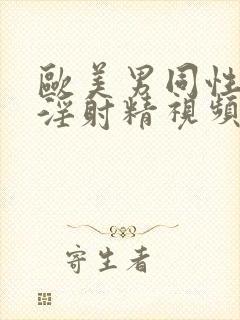 歐美男同性
淫射精視頻
寄生者